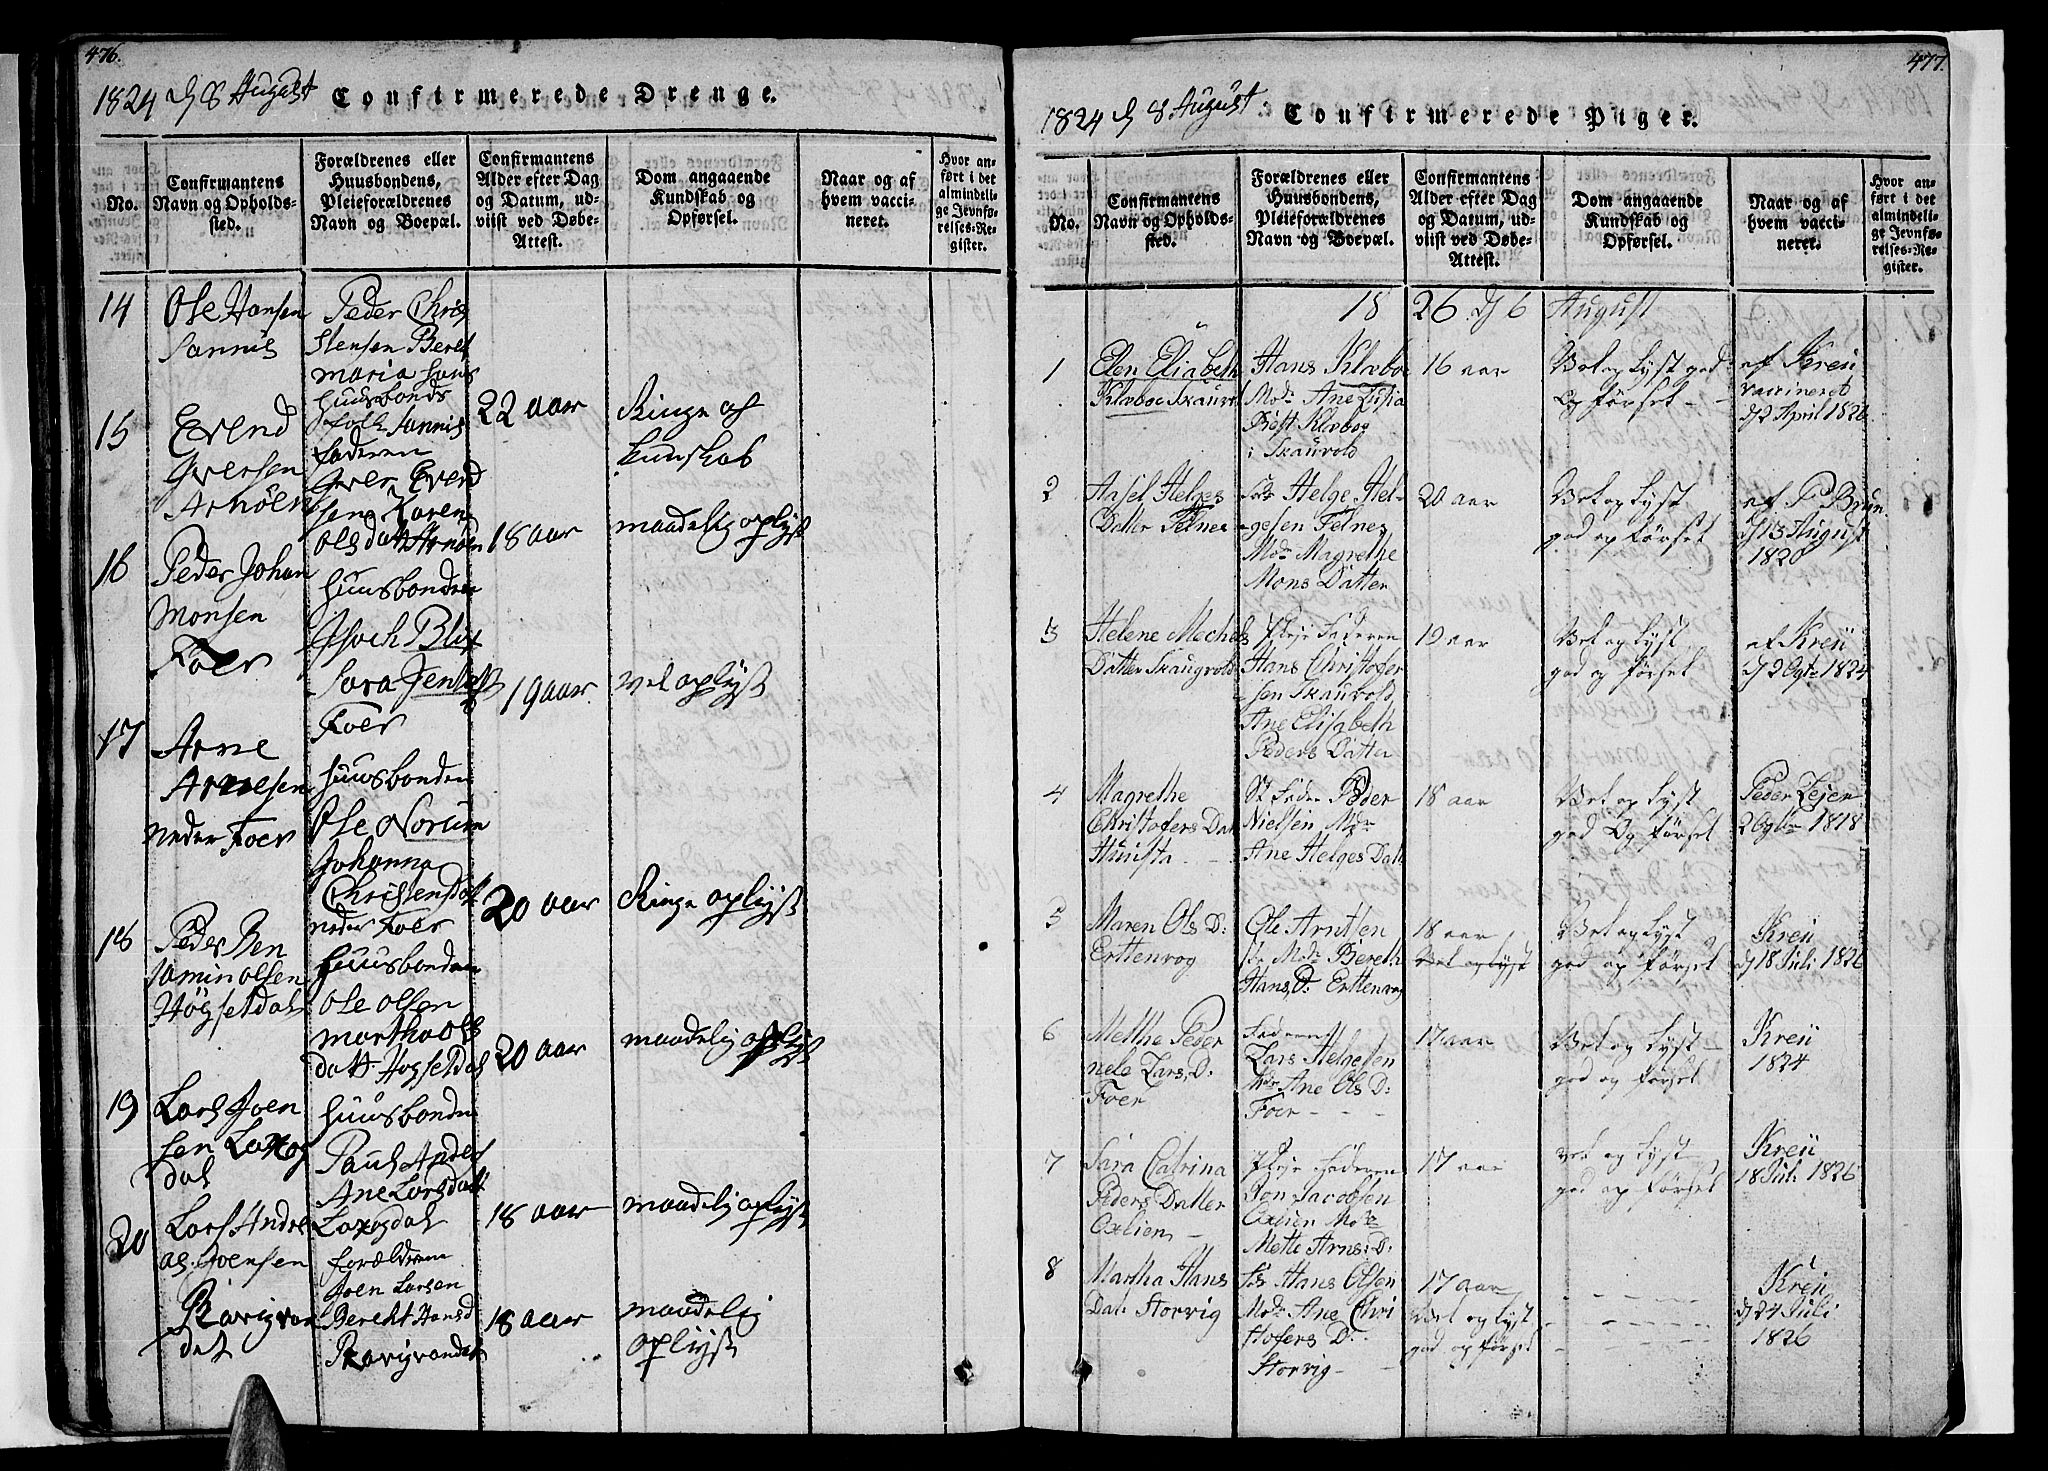 476.
1824 D 8 August Confirmerede Drenge.
No.
Confirmantens
Navn og Opholds-
sted.
Forældrenes eller
Huusbondens,
Pleieforældrenes
Navn og Boepæl.
Confirmantens
Alder efter Dag
og Datum, ud-
viist ved Døbe-
Attest.
Dom angaaende
Kundskab og
Opførsel.
Naar og af
hvem vacci-
neret.
Hvor an-
ført i det
almindeli-
ge Jevnfø-
relses-Re-
gister.
14
Ole Hansen
Sannis
Peder Chris
stensen Beret
maria
huusbonds
Sannis
22 aar
Ringe af
kunskab
15
Evend
Iversen
Arnøen
faderen
Iver Evend
sen Karen
olsdatt Arnøen
18 aar
maadelig oplyst
16
Peder Johan
Monsen
Foer
huusbonden
Isach Blix
Sara Jensd
Foer
19 aar
vel oplyst
17
Arne
Arnesen
neder Foer
huusbonden
Ole Norum
Johanna
Christensdatt
neder Foer
20 aar
Ringe oplyst
18
Peder Ben
jamin olsen
Høgsetdal
huusbonden
ole olsen
martha ols
datt. Høgsetdal
20 aar
maadelig oplyst
19
Lars Joen
sen Laxog
dal
huusbonden
Paul Anders
Ane Larsdatt
Laxogdal
18 aar
maadelig oplyst
20
Lars Andre
as Joensen
forældrene
Joen Larsen
Berethe Hansd
18 aar
maadelig
oplyst
477.
1824 D 8 August Confirmerede Piger.
No.
Confirmantens
Navn og Opholds-
sted.
Forældrenes eller
Huusbondens,
Pleieforældrenes
Navn og Boepæl.
Confirmantens
Alder efter Dag
og Datum, ud-
viist ved Døbe-
Attest.
Dom angaaende
Kundskab og
Opførsel.
Naar og af
hvem vacci-
neret.
Hvor an-
ført i det
almindeli-
ge Jevnfø-
relses-Re-
gister.
18 26 D 6 August
1
Elen Eliabeth
Klæboe Skaurol
Hans Klæboe
Modr Ane Lusia
Bøst Klæboe
i Skauvold
16 aar
Vel op lyst god
Op førsel - -
af Kreii
vaccineret
d 2 April 1826
2
Aasel Helges
Datter Felnes
Fadr Helge Hel-
gesen Felnes
Modr Magrethe
Mons Datter
20 aar
Vel op lyst
god op førsel
af P Brun
d 13 August
1820
3
Helene Mechels
Datter Skaugvold
Pleje Faderen
Hans Christofer
sen Skauvold
Ane Elisabeth
Peders Datter
19 aar
Vel op lyst
god og førsel
af Kreii
d 2 Ogte 1824
4
Magrethe
Christofers Dat
St Fader Peder
Nielsen Modr
Ane Helges Datt
18 aar
Vel op lyst
god Op førsel
Peder Lejen
1818
5
Maren Ols D:
Erttenvog
Ole Arntsen
Modr Bereth
Hans, D: Erttenvog
18 aar
Vel op lyst
Vel op lyst
god op førsel
Kreii
d 18 Juli 1826
6
Methe Peder
nele Lars, D:
Foer
Faderen
Lars Helgesen
Modr Ane Ols D:
Foer - - -
17 aar
Vel op lyst -
god og førsel
Kreii
1824
7
Sara Catrina
Peders Datter
Oxlien -
Pleje Faderen
Jon Jacobsen
Oxlien Modr
Mette Arns: D:
17 aar
vel op lyst -
god op førsel
Kreii
18 Juli 1826
8
Martha Hans
Dat: Storvig
Fadr Hans Olsen
Modr Ane Chri
stofers D:
Storvig -
17 aar
Vel op lyst
god op førsel
Kreii
d 24 Juli
1826